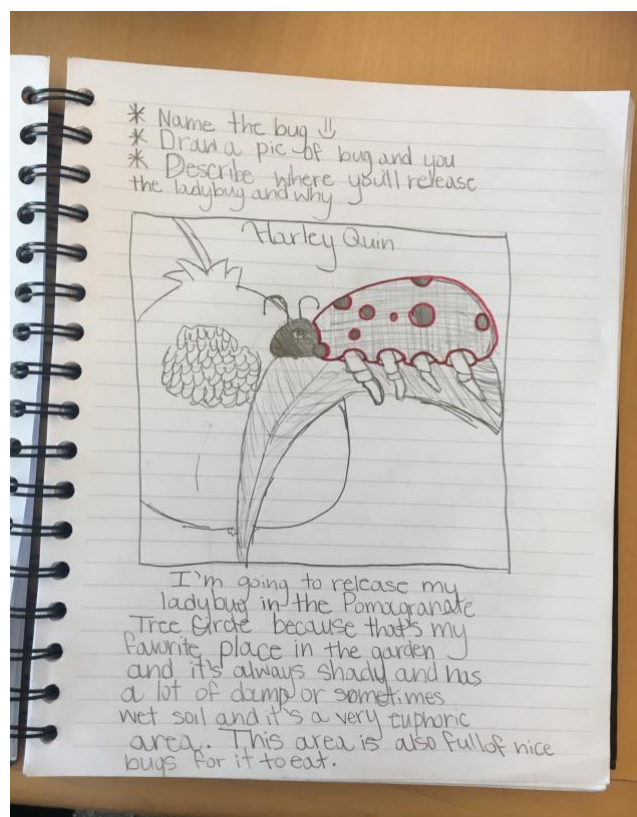 * Name the bug
* Draw a pic of bug and you
* Describe where you'll release
the ladybug and why
Harley Quin
I'm going to release my
ladybug in the Pomagranate
Tree Circle because that's my
favorite place in the garden
and it's always shady and has
a lot of damp or sometimes
wet soil and it's a very euphoric
area. This area is also full of nice
bugs for it to eat.